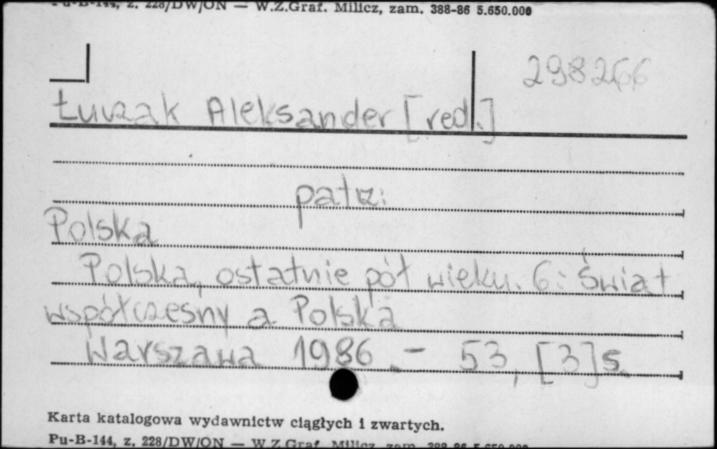 Pu-B-144, z. 228/DW/ON — W.Z.Graf. Milicz, zam. 388-86 5.650.000
298266
Łuczak Aleksander [red.]
patrz:
Polska
Polska, ostatnie pół wieku. 6: Świat
współczesny a Polska
Warszawa 1986 .- 53, [3] s.
Karta katalogowa wydawnictw ciągłych i zwartych.
Pu-B-144, z. 228/DW/ON — W.Z.Graf. Milicz, zam. 388-86 5.650.000